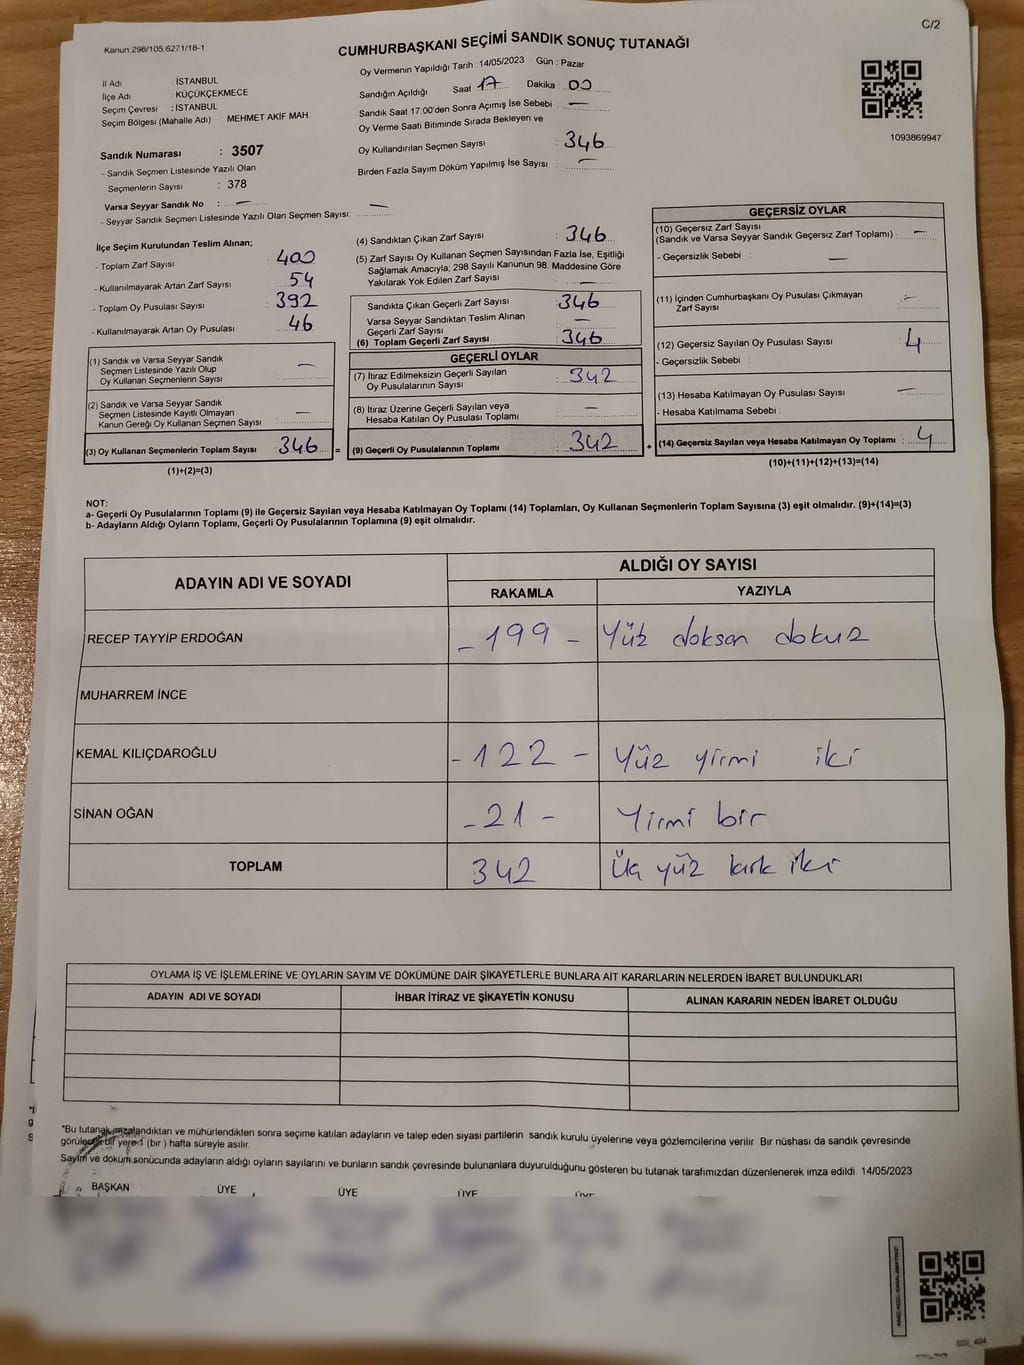 C/2
Kanun:298/105.6271/18-1
CUMHURBAŞKANI SEÇİMİ SANDIK SONUÇ TUTANAĞI
Oy Vermenin Yapıldığı Tarih : 14/05/2023 Gün : Pazar
İl Adı : İSTANBUL
İlçe Adı : KÜÇÜKÇEKMECE
Seçim Çevresi : İSTANBUL
Seçim Bölgesi (Mahalle Adı) : MEHMET AKİF MAH.
Sandık Numarası : 3507
- Sandık Seçmen Listesinde Yazılı Olan
Seçmenlerin Sayısı : 378
Varsa Seyyar Sandık No : —
- Seyyar Sandık Seçmen Listesinde Yazılı Olan Seçmen Sayısı: —
Sandığın Açıldığı Saat : 17 Dakika : 00
Sandık Saat 17:00'den Sonra Açımış İse Sebebi : —
Oy Verme Saati Bitiminde Sırada Bekleyen ve
Oy Kullandırılan Seçmen Sayısı : 346
Birden Fazla Sayım Döküm Yapılmış İse Sayısı : —
1093869947
İlçe Seçim Kurulundan Teslim Alınan;
- Toplam Zarf Sayısı : 400
- Kullanılmayarak Artan Zarf Sayısı : 54
- Toplam Oy Pusulası Sayısı : 392
- Kullanılmayarak Artan Oy Pusulası : 46
(1) Sandık ve Varsa Seyyar Sandık
Seçmen Listesinde Yazılı Olup
Oy Kullanan Seçmenlerin Sayısı : —
(2) Sandık ve Varsa Seyyar Sandık
Seçmen Listesinde Kayıtlı Olmayan
Kanun Gereği Oy Kullanan Seçmen Sayısı : —
(3) Oy Kullanan Seçmenlerin Toplam Sayısı : 346 =
(1)+(2)=(3)
(4) Sandıktan Çıkan Zarf Sayısı : 346
(5) Zarf Sayısı Oy Kullanan Seçmen Sayısından Fazla İse, Eşitliği
Sağlamak Amacıyla; 298 Sayılı Kanunun 98. Maddesine Göre
Yakılarak Yok Edilen Zarf Sayısı : —
Sandıkta Çıkan Geçerli Zarf Sayısı : 346
Varsa Seyyar Sandıktan Teslim Alınan
Geçerli Zarf Sayısı : —
(6) Toplam Geçerli Zarf Sayısı : 346
GEÇERLİ OYLAR
(7) İtiraz Edilmeksizin Geçerli Sayılan
Oy Pusulalarının Sayısı : 342
(8) İtiraz Üzerine Geçerli Sayılan veya
Hesaba Katılan Oy Pusulası Toplamı : —
(9) Geçerli Oy Pusulalarının Toplamı : 342 +
GEÇERSİZ OYLAR
(10) Geçersiz Zarf Sayısı
(Sandık ve Varsa Seyyar Sandık Geçersiz Zarf Toplamı) : —
- Geçersizlik Sebebi : —
(11) İçinden Cumhurbaşkanı Oy Pusulası Çıkmayan
Zarf Sayısı : —
(12) Geçersiz Sayılan Oy Pusulası Sayısı : 4
- Geçersizlik Sebebi :
(13) Hesaba Katılmayan Oy Pusulası Sayısı : —
- Hesaba Katılmama Sebebi :
(14) Geçersiz Sayılan veya Hesaba Katılmayan Oy Toplamı : 4
(10)+(11)+(12)+(13)=(14)
NOT:
a- Geçerli Oy Pusulalarının Toplamı (9) ile Geçersiz Sayılan veya Hesaba Katılmayan Oy Toplamı (14) Toplamları, Oy Kullanan Seçmenlerin Toplam Sayısına (3) eşit olmalıdır. (9)+(14)=(3)
b- Adayların Aldığı Oyların Toplamı, Geçerli Oy Pusulalarının Toplamına (9) eşit olmalıdır.
ADAYIN ADI VE SOYADI ALDIĞI OY SAYISI
RAKAMLA YAZIYLA
RECEP TAYYİP ERDOĞAN - 199 - Yüz doksan dokuz
MUHARREM İNCE
KEMAL KILIÇDAROĞLU - 122 - Yüz yirmi iki
SİNAN OĞAN - 21 - Yirmi bir
TOPLAM 342 Üç yüz kırk iki
OYLAMA İŞ VE İŞLEMLERİNE VE OYLARIN SAYIM VE DÖKÜMÜNE DAİR ŞİKAYETLERLE BUNLARA AİT KARARLARIN NELERDEN İBARET BULUNDUKLARI
ADAYIN ADI VE SOYADI İHBAR İTİRAZ VE ŞİKAYETİN KONUSU ALINAN KARARIN NEDEN İBARET OLDUĞU
*Bu tutanak imzalandıktan ve mühürlendikten sonra seçime katılan adayların ve talep eden siyasi partilerin sandık kurulu üyelerine veya gözlemcilerine verilir. Bir nüshası da sandık çevresinde
görülecek bir yere 1 (bir ) hafta süreyle asılır.
Sayım ve döküm sonucunda adayların aldığı oyların sayılarını ve bunların sandık çevresinde bulunanlara duyurulduğunu gösteren bu tutanak tarafımızdan düzenlenerek imza edildi. 14/05/2023
BAŞKAN ÜYE ÜYE ÜYE ÜYE